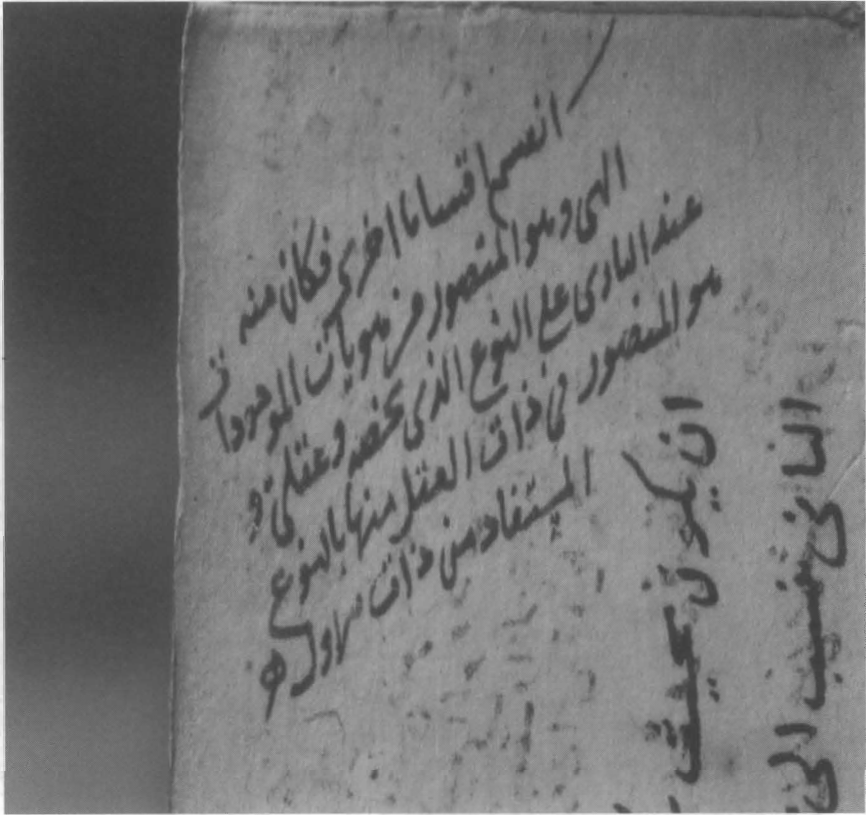 انقسم اقساما اخرى فكان منه
الهى وهو المتصور من هويات الموجودات
عند البارى على النوع الذى يخصه وعقلى و
هو المتصور فى ذات العقل منها بالنوع
المستفاد من ذات الاول
ان يكون
الى